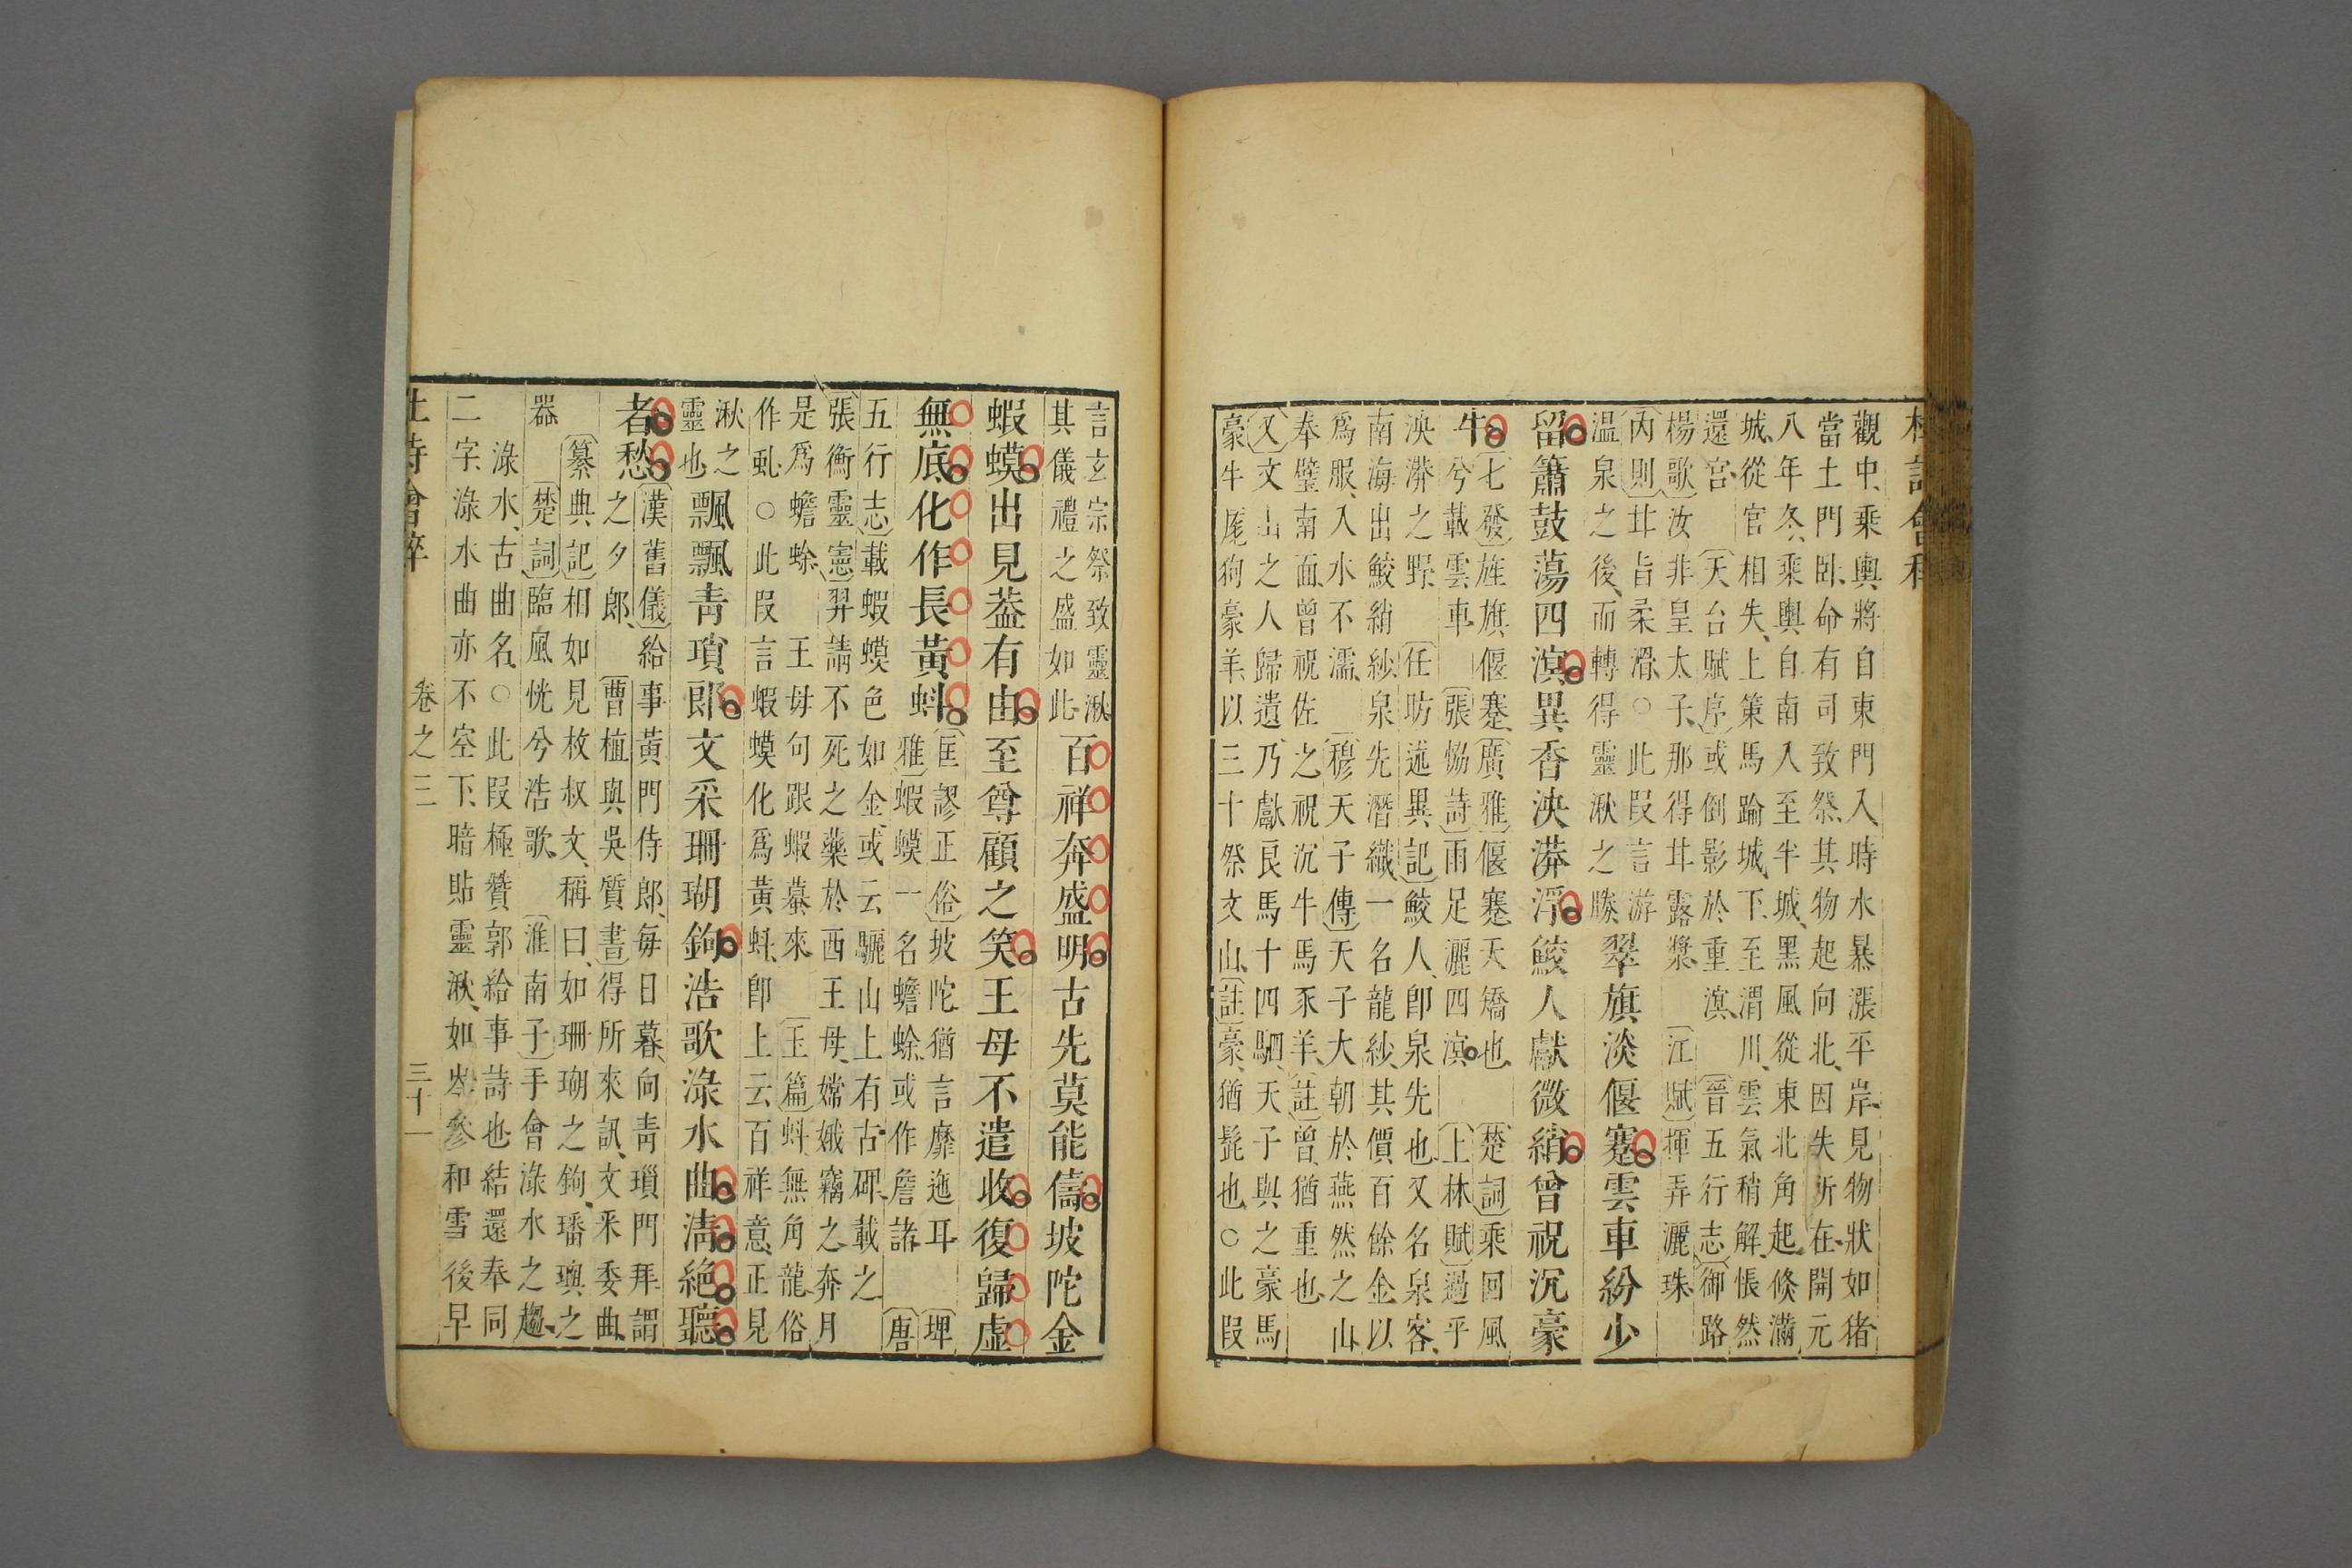 觀中、乘輿將自東門入、時水暴漲平岸、見物狀如猪
當土門臥、命有司致祭、其物起向北、因失所在、開元
八年冬、乘輿自南入至半城、黑風從東北角起、倏滿
城、從官相失、上策馬踰城、下、至渭川、雲氣稍解、悵然
還宮、〔天台賦序〕或倒影於重溟、〔晉五行志〕御路
楊歌〕汝非皇太子、那得甘露漿、〔江賦〕揮弄灑珠
〔內則〕甘旨柔滑、○此段言游
温泉之後、而轉得靈湫之勝
翠旗淡偃蹇雲車紛少
留簫鼓蕩四溟異香泱漭浮鮫人獻微綃曾祝沉豪
牛
〔七發〕旌旗偃蹇、〔廣雅〕偃蹇夭矯也、〔楚詞〕乘回風
兮載雲車 〔張協詩〕雨足灑四溟、〔上林賦〕過乎
泱漭之野、〔任昉述異記〕鮫人、卽泉先也、又名泉客、
南海出鮫綃紗泉先潛織一名龍紗、其價百餘金以
爲服、入水不濡、〔穆天子傳〕天子大朝於燕然之山、
奉璧南面、曾祝佐之祝沉牛馬豕羊、〔註〕曾、猶重也、
〔又〕文山之人歸遺、乃獻良馬十四駟、天子與之豪馬
豪牛尨狗豪羊、以三十祭文山、〔註〕豪、猶髭也、○此段
言玄宗祭致靈湫
其儀禮之盛如此
百祥奔盛明古先莫能儔坡陀金
蝦蟆出見葢有由至尊顧之笑王母不遣收復歸虛
無底化作長黃虯
〔匡謬正俗〕坡陀猶言靡迤耳 〔埤
雅〕蝦蟆一名蟾蜍、或作詹諸、〔唐
五行志〕載蝦蟆色如金、或云驪山上有古碑、載之
張衡靈憲〕羿請不死之藥於西王母、嫦娥竊之、奔月
是爲蟾蜍 王母句跟蝦蟇來 〔玉篇〕虯、無角龍、俗
作虬○此段言蝦蟆化爲黃虯、卽上云百祥意、正見
湫之
靈也
飄飄靑瑣郎文采珊瑚鉤浩歌淥水曲淸絶聽
者愁
〔漢舊儀〕給事黃門侍郎、每日暮、向靑瑣門拜謂
之夕郎、〔曹植與吳質書〕得所來訊、文采委曲、
〔纂典記〕相如見枚叔文、稱曰、如珊瑚之鉤、璠璵之
器 〔楚詞〕臨風怳兮浩歌、〔淮南子〕手會淥水之趨、
淥水、古曲名、○此段極贊郭給事詩也、結還奉同
二字、淥水曲亦不空下、暗貼靈湫、如岑參和雪後早
卷之三
三十一